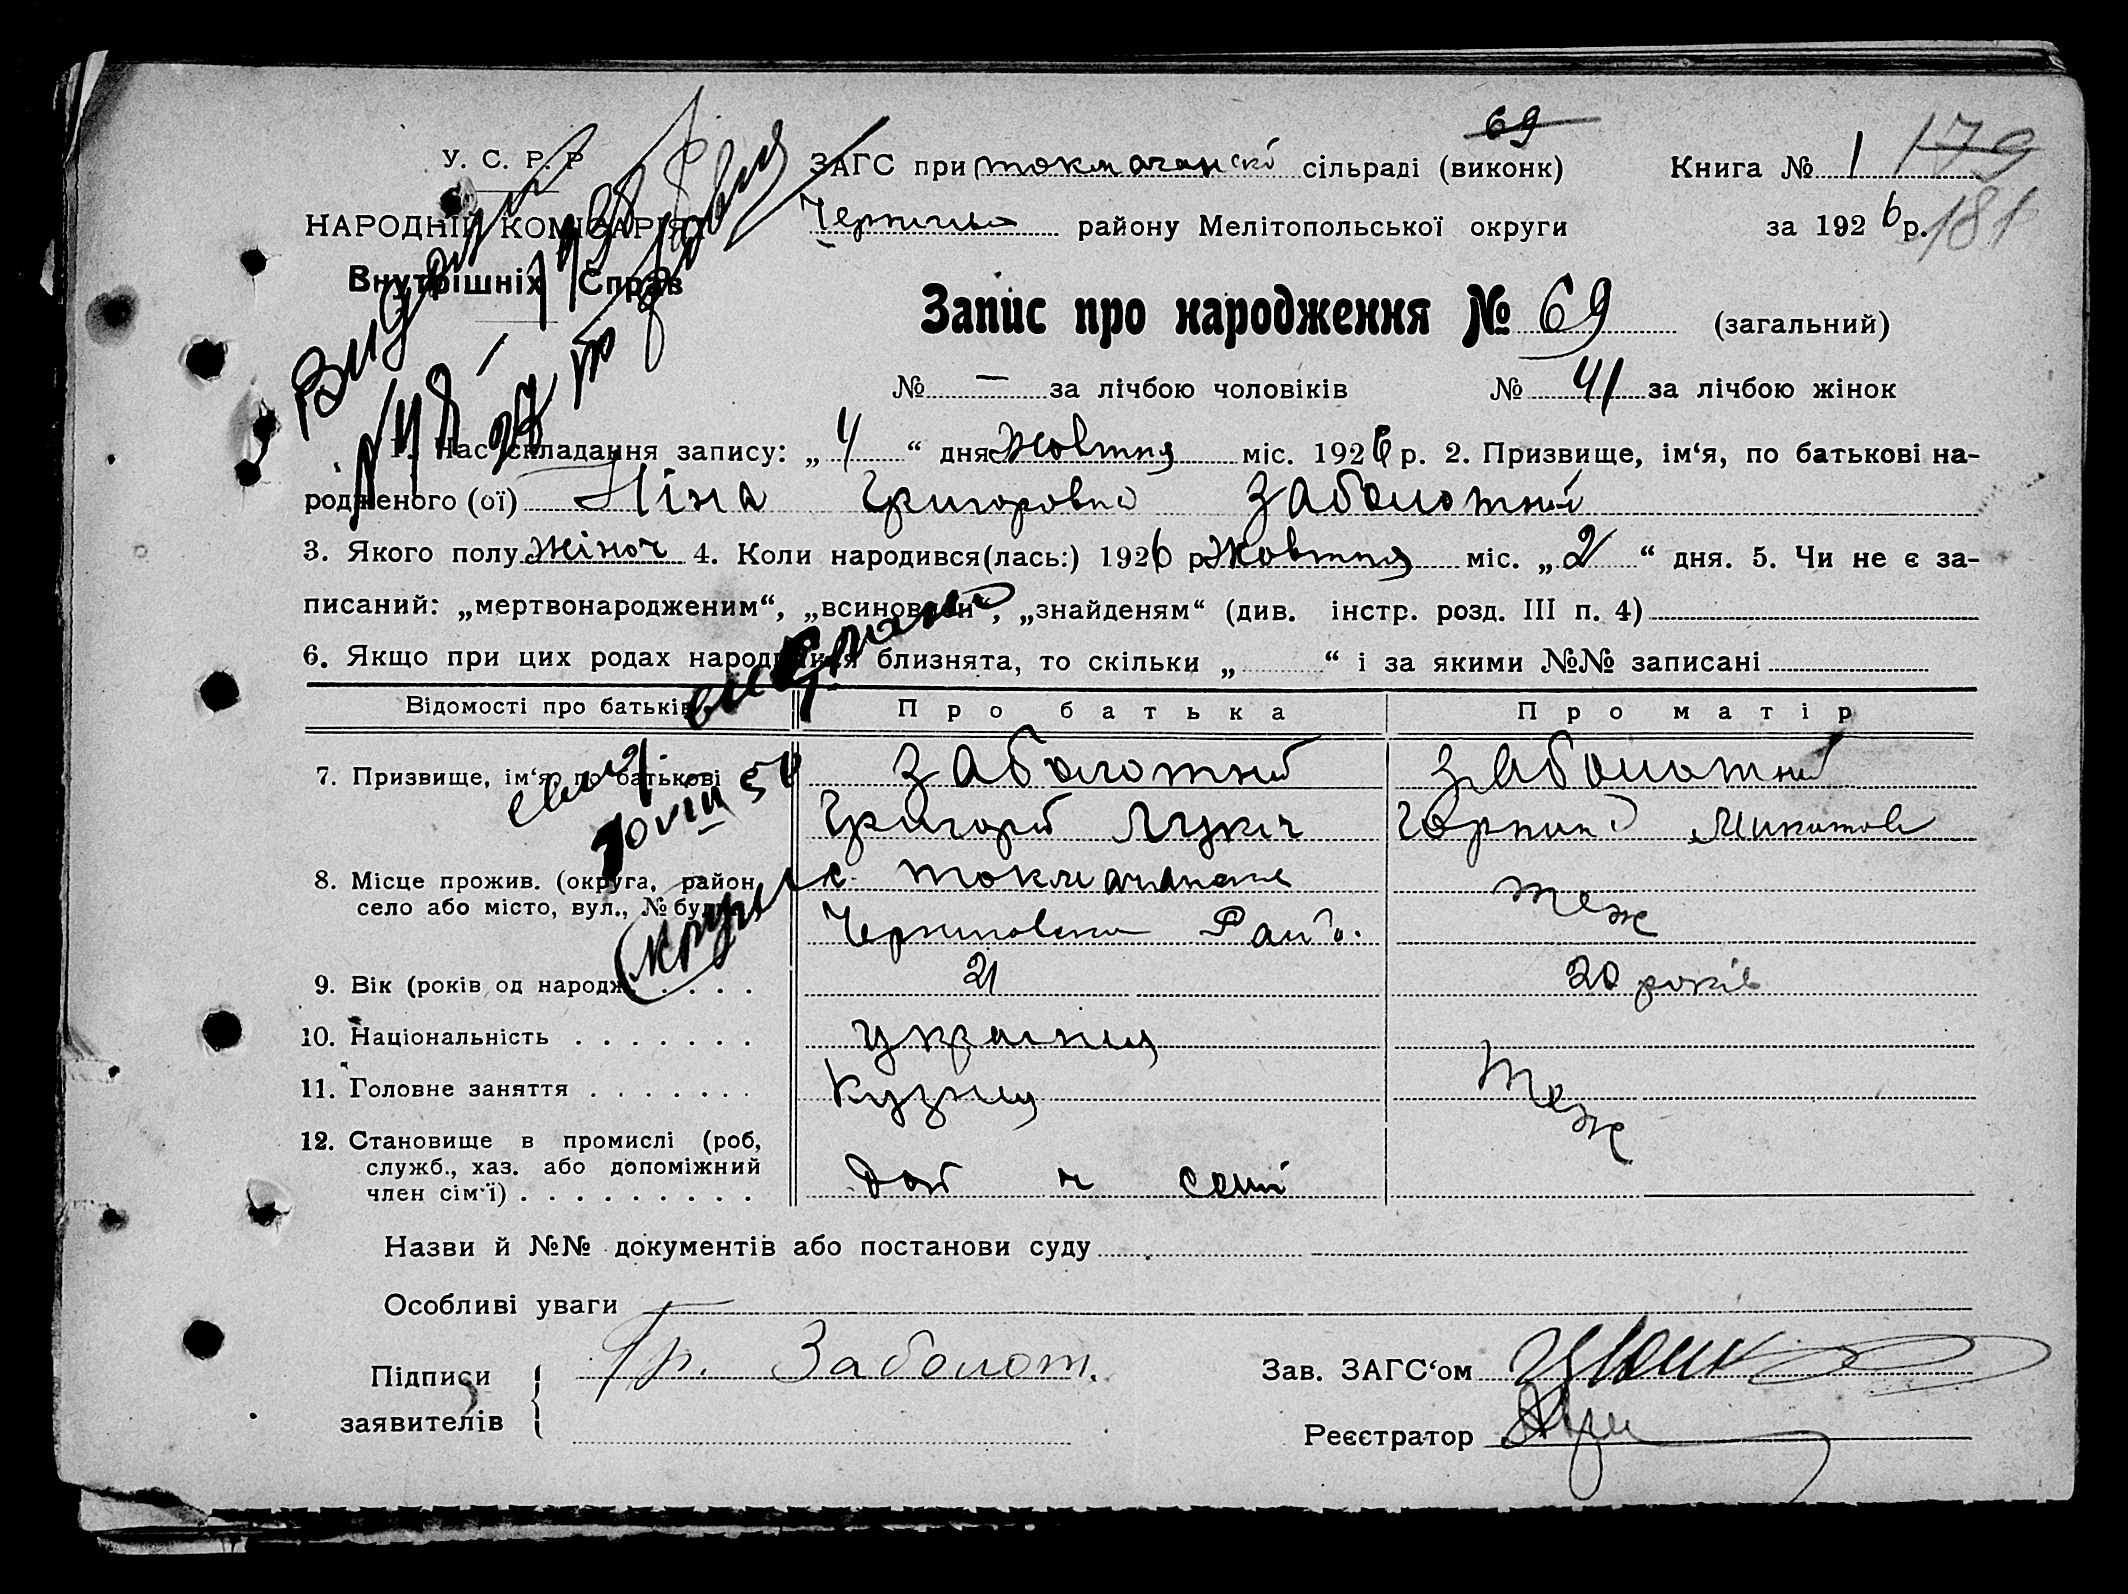 69
У. С. Р. Р
ЗАГС при сільраді (виконк)
Книга № 1 179
НАРОДНІЙ КОМІСАРІЯТ
району Мелітопольської округи
за 1926 р. 181
Внутрішніх Справ
Запис про народження № 69 (загальний)
№ — за лічбою чоловіків № 41 за лічбою жінок
1. Час складання запису: „4“ дня Жовтня міс. 1926 р. 2. Призвище, ім‘я, по батькові на-
родженого (ої) Ніна Григоровна Заболотній
3. Якого полу жіноч 4. Коли народився(лась:) 1926 р Жовтня міс. „2“ дня. 5. Чи не є за-
писаний: „мертвонародженим“, „всиновлен“, „знайденям“ (див. інстр. розд. III п. 4)
6. Якщо при цих родах народилися близнята, то скільки „ “ і за якими №№ записані
Відомості про батьків Про батька Про матір
7. Призвище, ім‘я, по батькові Заболотний Заболотній
Григорій Лукіч Горпина Микитов
8. Місце прожив. (округа, район,
село або місто, вул., № буд.
теж
Район.
9. Вік (років од народж. . . . . 21 20 років
10. Національність . . . . . . . українец
11. Головне заняття . . . . . . . Кузнец теж
12. Становище в промислі (роб,
служб., хаз. або допоміжний
член сім‘ї) . . . . . . . . .
Назви й №№ документів або постанови суду
Особливі уваги
Підписи Гр. Заболот. Зав. ЗАГС‘ом
заявителів
Реєстратор